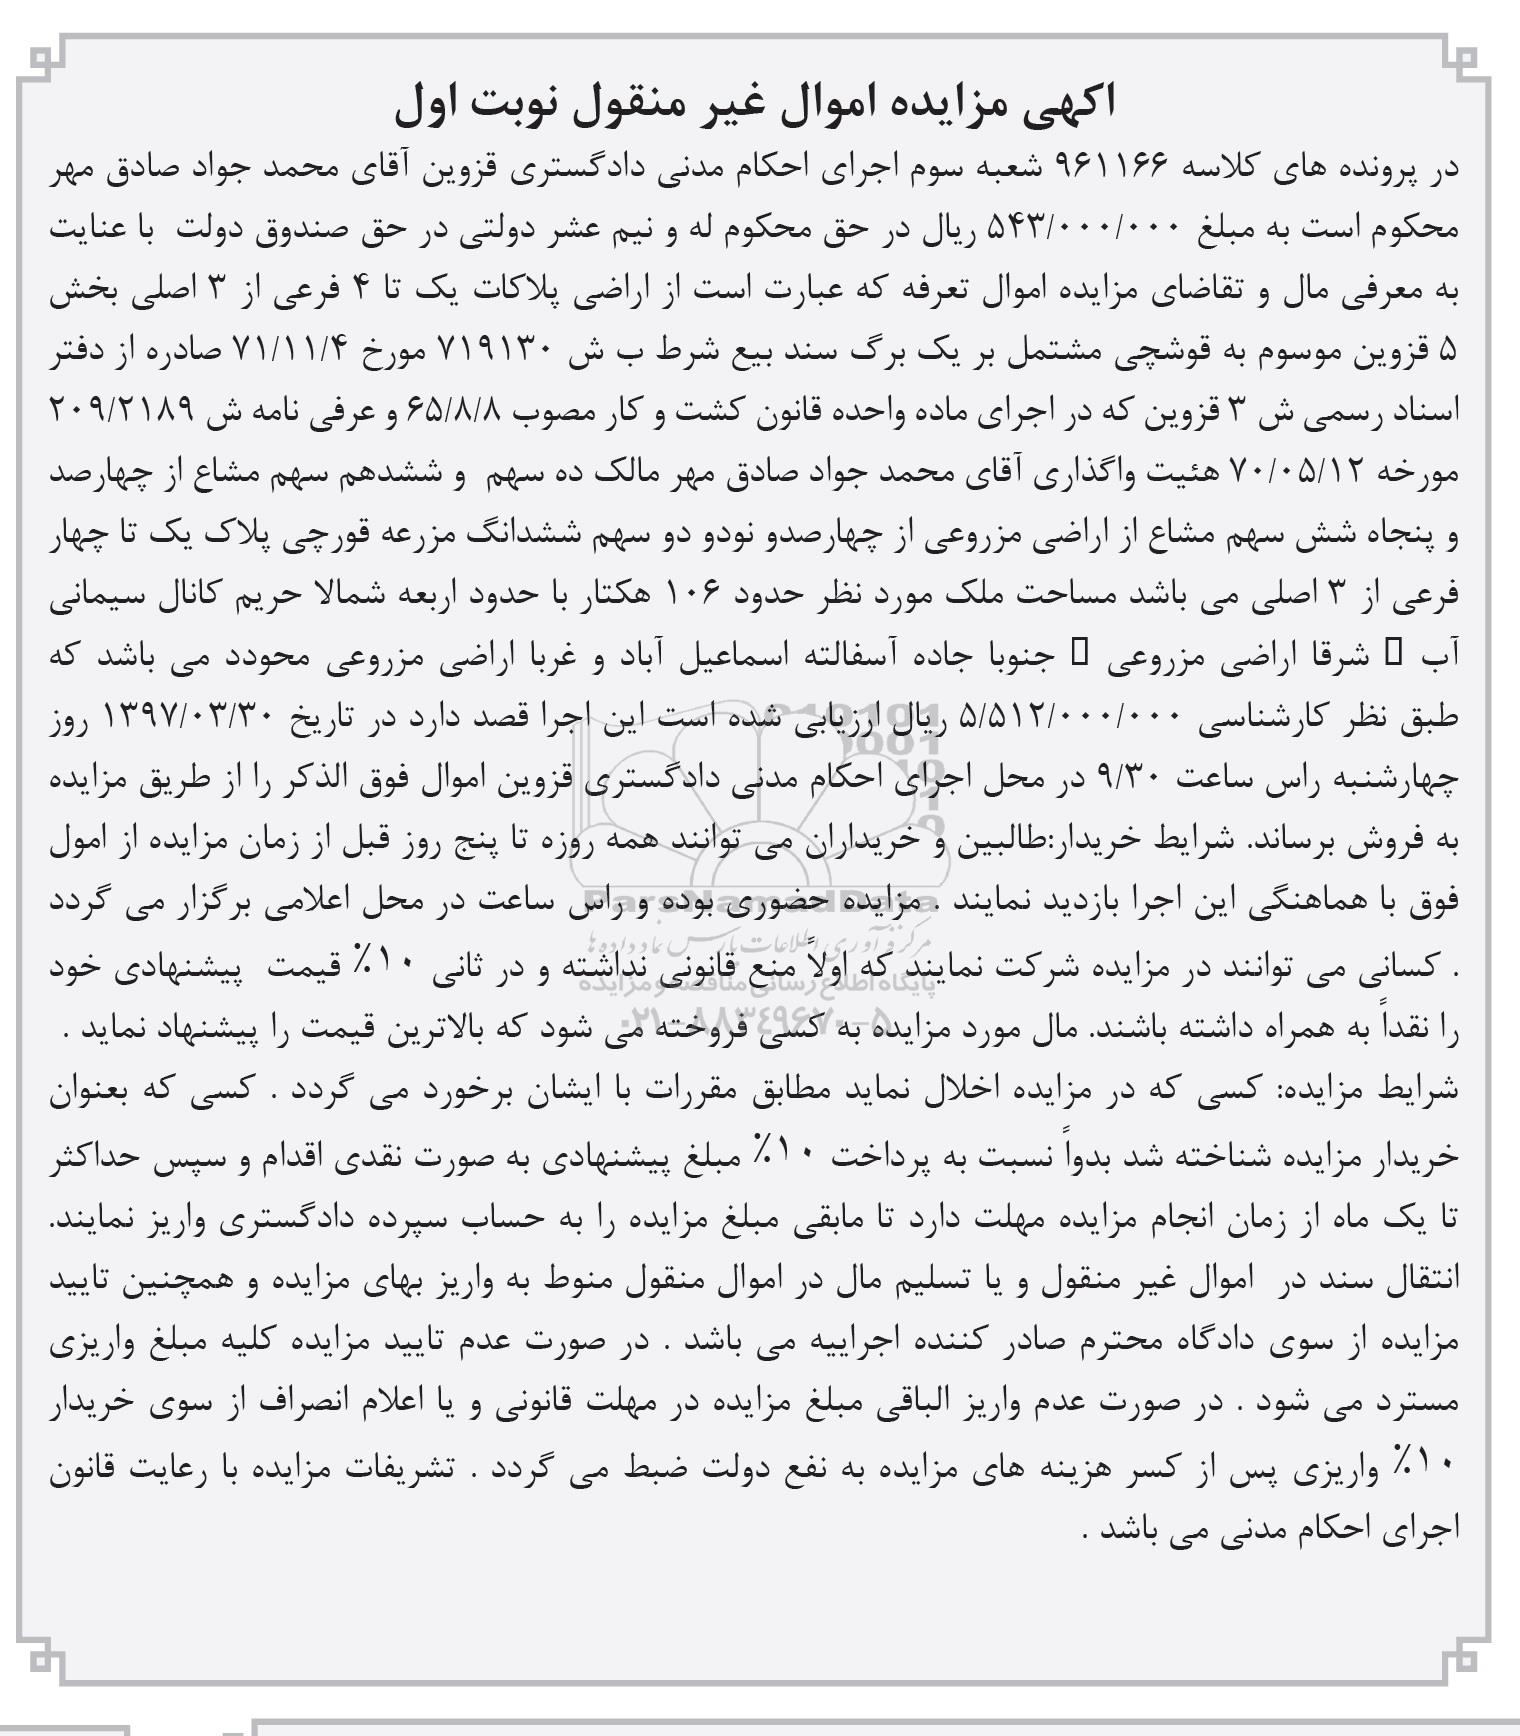 اکهی مزایده اموال غیر منقول نوبت اول
در پرونده های کلاسه ۹۶۱۱۶۶ شعبه سوم اجرای احکام مدنی دادگستری قزوین آقای محمد جواد صادق مهر
محکوم است به مبلغ ۵۴۳/۰۰۰/۰۰۰ ریال در حق محکوم له و نیم عشر دولتی در حق صندوق دولت با عنایت
به معرفی مال و تقاضای مزایده اموال تعرفه که عبارت است از اراضی پلاکات یک تا ۴ فرعی از ۳ اصلی بخش
۵ قزوین موسوم به قوشچی مشتمل بر یک برگ سند بیع شرط ب ش ۷۱۹۱۳۰ مورخ ۷۱/۱۱/۴ صادره از دفتر
اسناد رسمی ش ۳ قزوین که در اجرای ماده واحده قانون کشت و کار مصوب ۶۵/۸/۸ و عرفی نامه ش ۲۰۹/۲۱۸۹
مورخه ۷۰/۰۵/۱۲ هئیت واگذاری آقای محمد جواد صادق مهر مالک ده سهم و ششدهم سهم مشاع از چهارصد
و پنجاه شش سهم مشاع از اراضی مزروعی از چهارصدو نودو دو سهم ششدانگ مزرعه قورچی پلاک یک تا چهار
فرعی از ۳ اصلی می باشد مساحت ملک مورد نظر حدود ۱۰۶ هکتار با حدود اربعه شمالا حریم کانال سیمانی
آب ▯ شرقا اراضی مزروعی ▯ جنوبا جاده آسفالته اسماعیل آباد و غربا اراضی مزروعی محودد می باشد که
طبق نظر کارشناسی ۵/۵۱۲/۰۰۰/۰۰۰ ریال ارزیابی شده است این اجرا قصد دارد در تاریخ ۱۳۹۷/۰۳/۳۰ روز
چهارشنبه راس ساعت ۹/۳۰ در محل اجرای احکام مدنی دادگستری قزوین اموال فوق الذکر را از طریق مزایده
به فروش برساند. شرایط خریدار:طالبین و خریداران می توانند همه روزه تا پنج روز قبل از زمان مزایده از امول
فوق با هماهنگی این اجرا بازدید نمایند . مزایده حضوری بوده و راس ساعت در محل اعلامی برگزار می گردد
. کسانی می توانند در مزایده شرکت نمایند که اولاً منع قانونی نداشته و در ثانی ۱۰٪ قیمت پیشنهادی خود
را نقداً به همراه داشته باشند. مال مورد مزایده به کسی فروخته می شود که بالاترین قیمت را پیشنهاد نماید .
شرایط مزایده: کسی که در مزایده اخلال نماید مطابق مقررات با ایشان برخورد می گردد . کسی که بعنوان
خریدار مزایده شناخته شد بدواً نسبت به پرداخت ۱۰٪ مبلغ پیشنهادی به صورت نقدی اقدام و سپس حداکثر
تا یک ماه از زمان انجام مزایده مهلت دارد تا مابقی مبلغ مزایده را به حساب سپرده دادگستری واریز نمایند.
انتقال سند در اموال غیر منقول و یا تسلیم مال در اموال منقول منوط به واریز بهای مزایده و همچنین تایید
مزایده از سوی دادگاه محترم صادر کننده اجراییه می باشد . در صورت عدم تایید مزایده کلیه مبلغ واریزی
مسترد می شود . در صورت عدم واریز الباقی مبلغ مزایده در مهلت قانونی و یا اعلام انصراف از سوی خریدار
۱۰٪ واریزی پس از کسر هزینه های مزایده به نفع دولت ضبط می گردد . تشریفات مزایده با رعایت قانون
اجرای احکام مدنی می باشد .
ParsNamadData
مرکز فرآوری اطلاعات پارس نماد داده ها
پایگاه اطلاع رسانی مناقصه و مزایده
۰۲۱-۸۸۳۴۹۶۷۰-۵